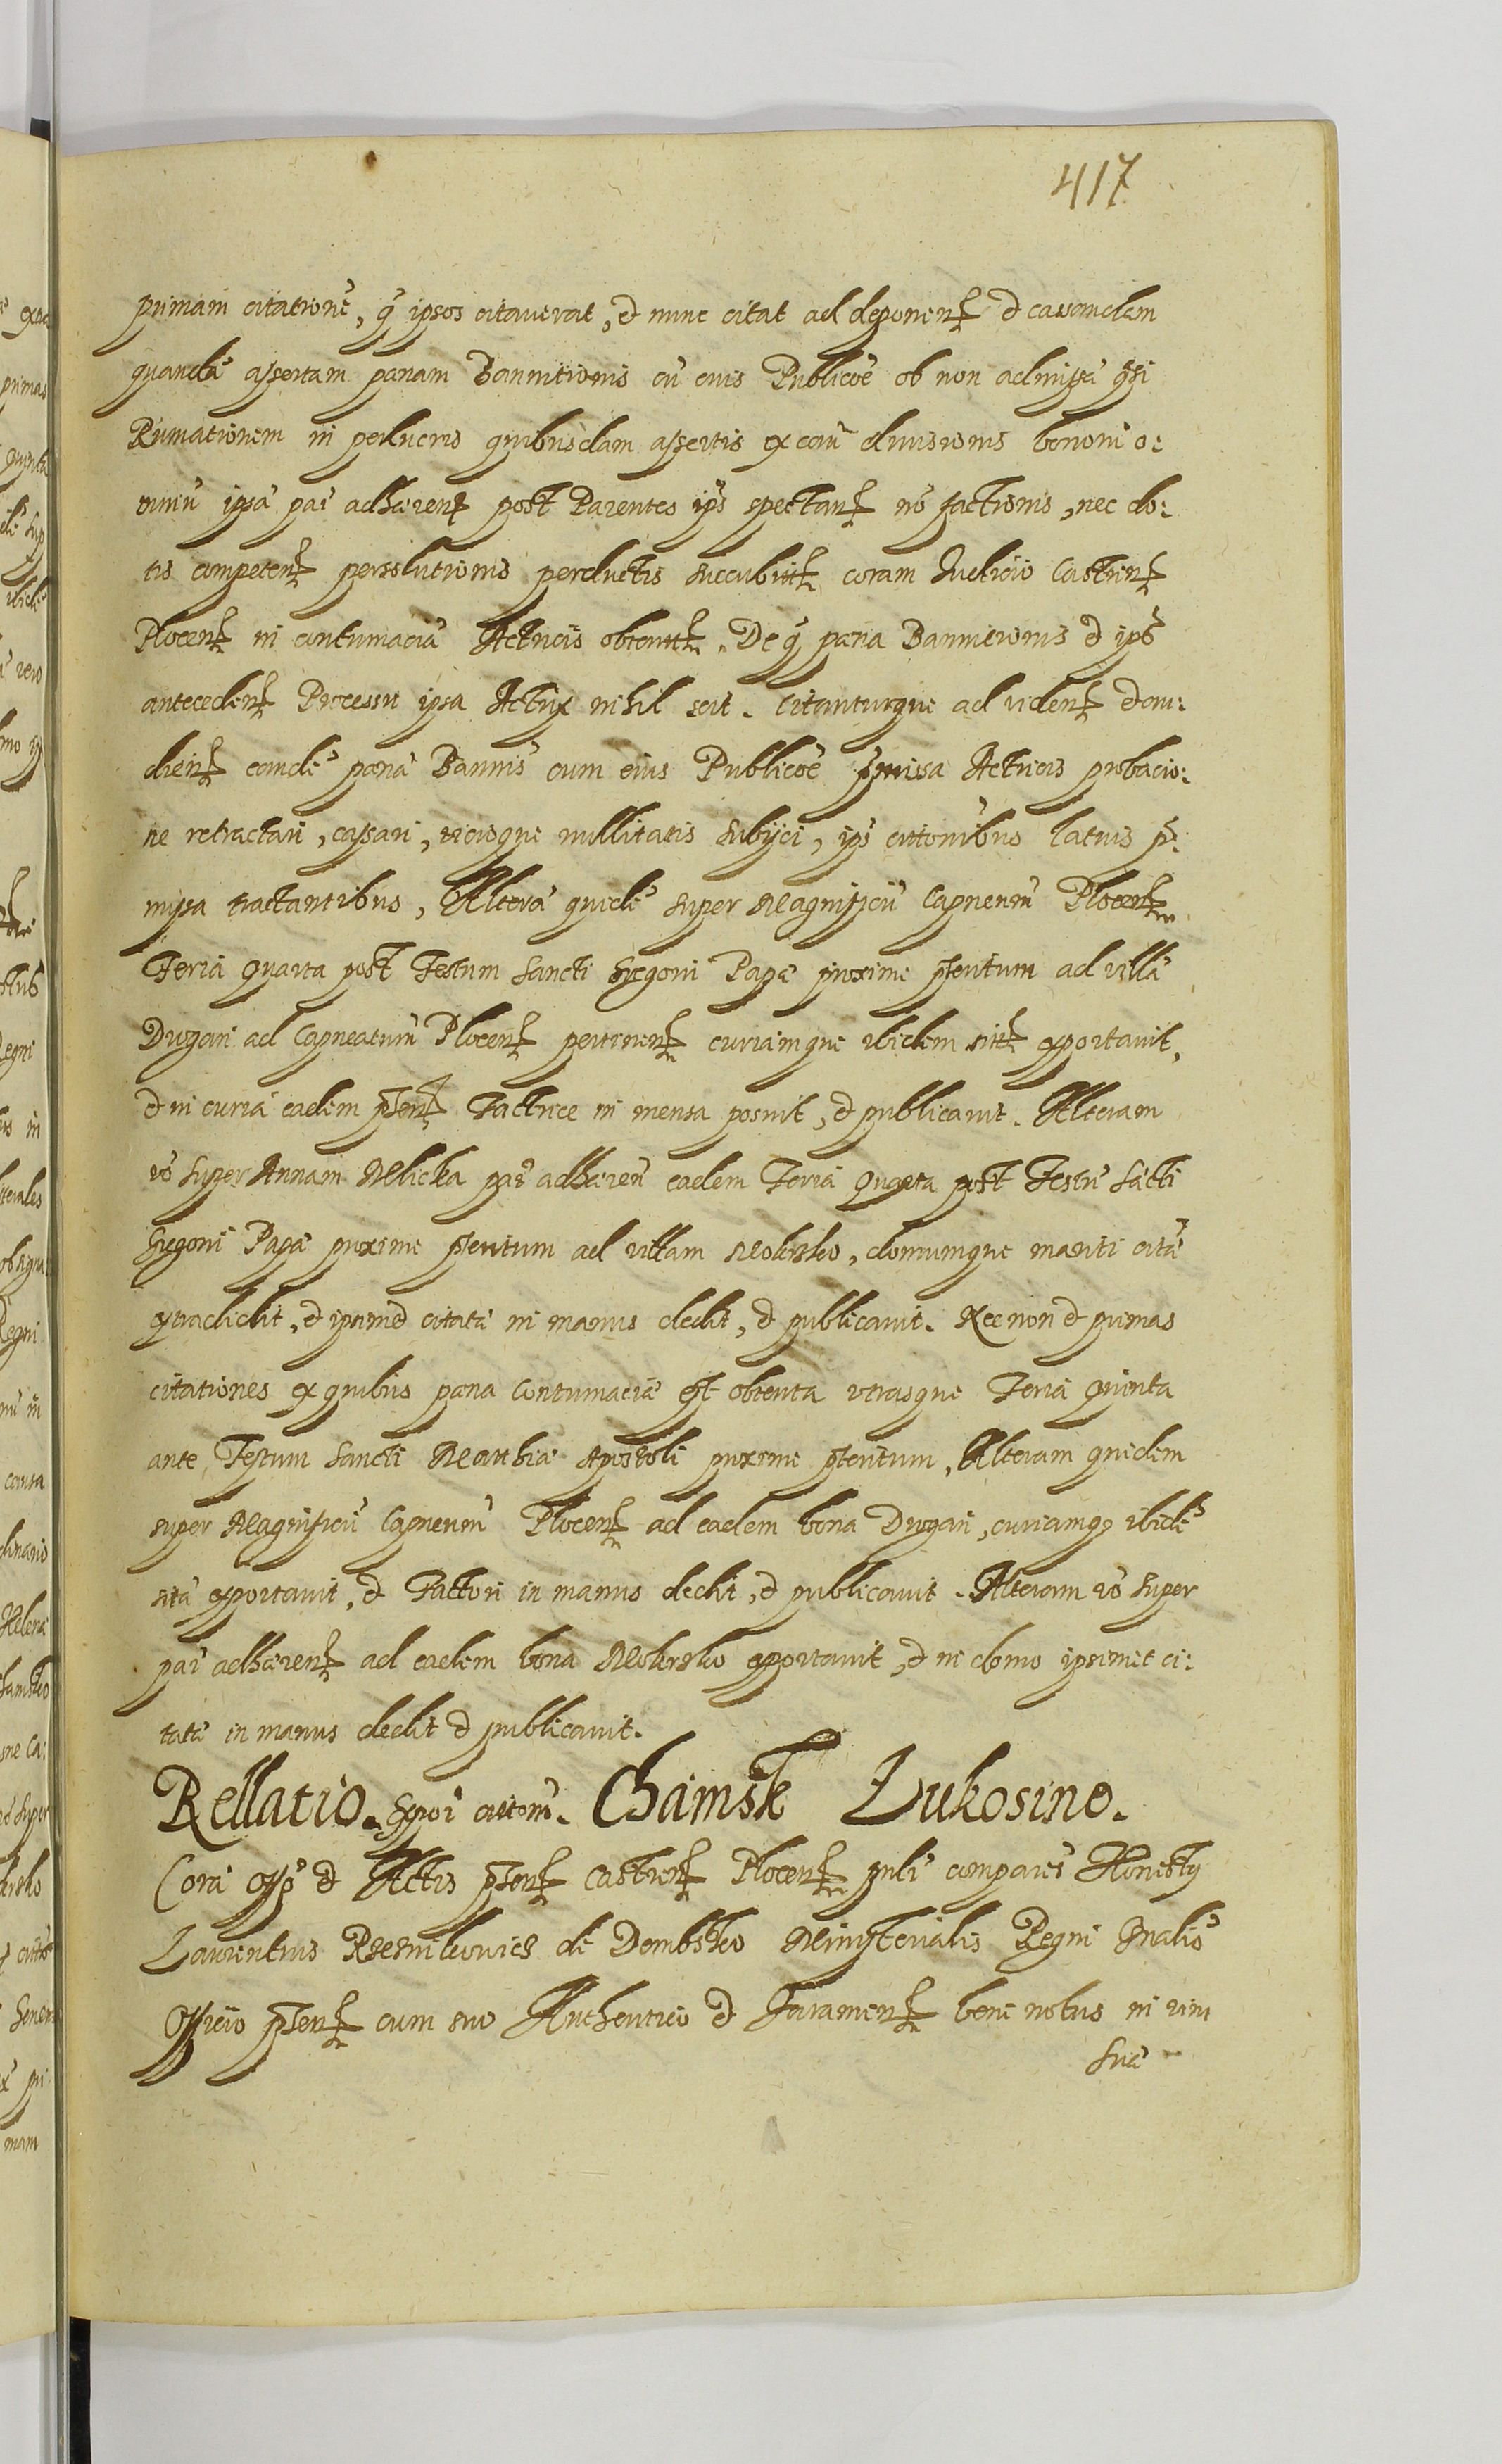 417
primam citationẽ, q̃ ipsos citaverat, & nunc citat ad deponen & cassandam
quandã assertam pænam Bannitionis cũ eius Publicõe ob non admissã
Rumationem in perlucris quibusdam assertis ex cau divisionis bonorũ o:
mniũ ipsã par adhæren post Parentes ipis spectan nõ factionis, nec do:
tis competen persolutionis perductis succubitt coram Judicio Castren
Plocen in contumaciã Actricis obtentt. De q̃ pæna Bannitionis & ips
anteceden Processu ipsa Actrix nihil scit. Citanturque ad viden & au:
dien eandẽ pænã Bannis cum eius Publicõe præmissa Actricis probacio:
ne retractari, cassari, vicioque nullitatis subijci, ips citationibus latius p̃:
missa tractantibus, Alterã quidẽ super Magnificũ Capneum Plocen
Feria Quarta post Festum Sancti Gregorii Papæ proxime pteritum ad villã
Drogan ad Capneatum Plocen pertinen curiamque ibidem sitt apportavit,
& in curia eadem pñten Factrice in mensa posuit, & publicavit. Alteram
vo super Annam Milicka par adhæren eadem Feria Quarta post Festũ Sãcti
Gregorii Papæ proxime pteritum ad villam Mokrsko, domumque mariti citatæ
& ipsimet citatæ in manus dedit, & publicavit. Nec non & primas
citationes ex quibus pæna contumaciæ est obtenta utrasque Feria Quinta
ante Festum Sancti Mathiæ Apostoli proxime pteritum, Alteram quidem
super Magnificũ Capneum Plocen ad eadem bona Drogan, curiamq; ibidẽ
sitã apportavit, & Factori in manus dedit, & publicavit. Alteram vo super
par adhæren ad eadem bona Mokrsko apportavit, & in domo ipsimet ci:
tatæ in manus dedit & publicavit.
Rellatio. citton. Chamsk Lukosino.
Corã Offõ & Actis pñten Castren Plocen compares Honestus
Laurentius de Dombsko Ministerialis Regni Gnalis
Officio pñten cum suo Authentico & Juramen bene notus in vim
suæ